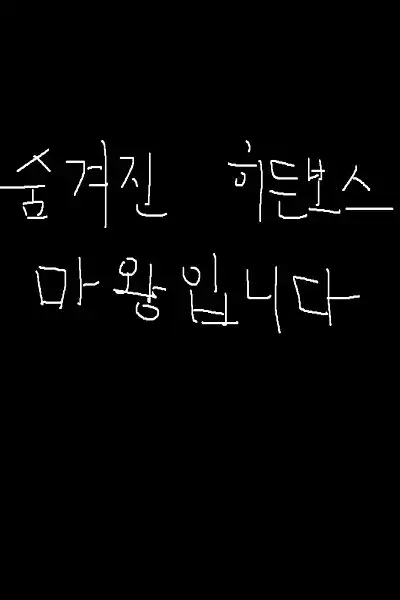 숨겨진 히든보스
마왕입니다